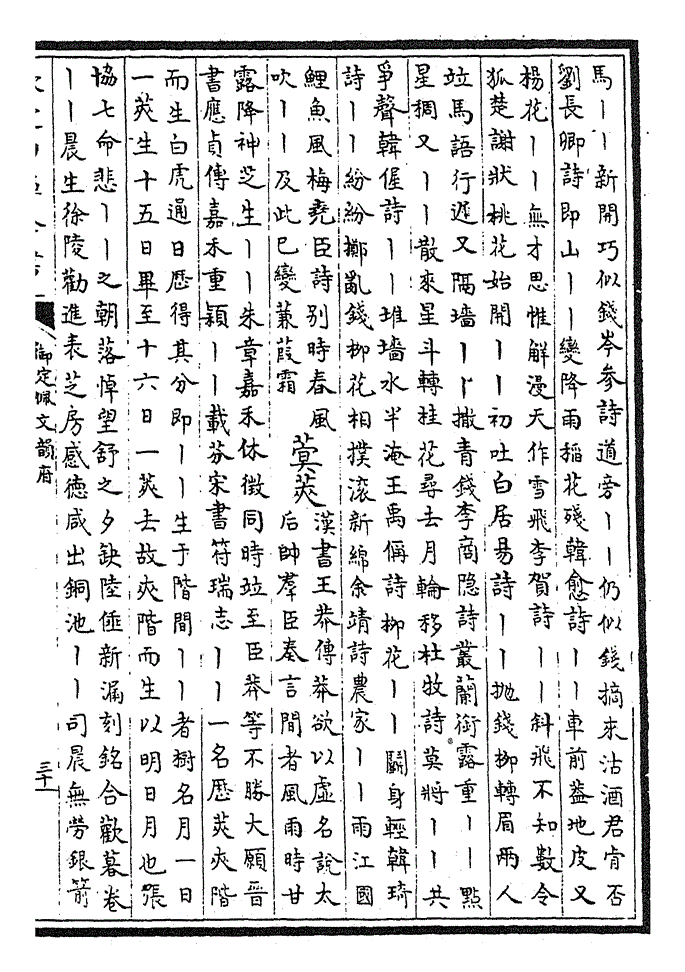 馬丨丨新開巧似錢岑參詩道旁丨丨仍似錢摘來沽酒君肯否
劉長卿詩即山丨丨變降雨稻花殘韓愈詩丨丨車前蓋地皮又
楊花丨丨無才思惟解漫天作雪飛李賀詩丨丨斜飛不知數令
狐楚謝狀桃花始開丨丨初吐白居易詩丨丨抛錢柳轉眉兩人
竝馬語行遲又隔墻丨丨撒青錢李商隐詩叢蘭銜露重丨丨點
星稠又丨丨散來星斗轉桂花尋去月輪移杜牧詩莫將丨丨共
爭聲韓偓詩丨丨堆墻水半淹王禹偁詩柳花丨丨鬭身輕韓琦
詩丨丨紛紛擲亂錢柳花相撲滚新綿余靖詩農家丨丨雨江國
鯉魚風梅堯臣詩别時春風
吹丨丨及此已變蒹葭霜
蓂莢
漢書王莽傳莽欲以虚名說太
后帥羣臣奏言間者風雨時甘
露降神芝生丨丨朱章嘉禾休徵同時竝至臣莽等不勝大願晉
書應貞傳嘉禾重穎丨丨載芬宋書符瑞志丨丨一名歷莢夾階
而生白虎通日歷得其分即丨丨生于階間丨丨者樹名月一日
一莢生十五日畢至十六日一莢去故夾階而生以明日月也張
協七命悲丨丨之朝落悼望舒之夕缺陸倕新漏刻銘合歡暮卷
丨丨晨生徐陵勸進表芝房感德咸出銅池丨丨司晨無勞銀箭
御定佩文韻府
三十一